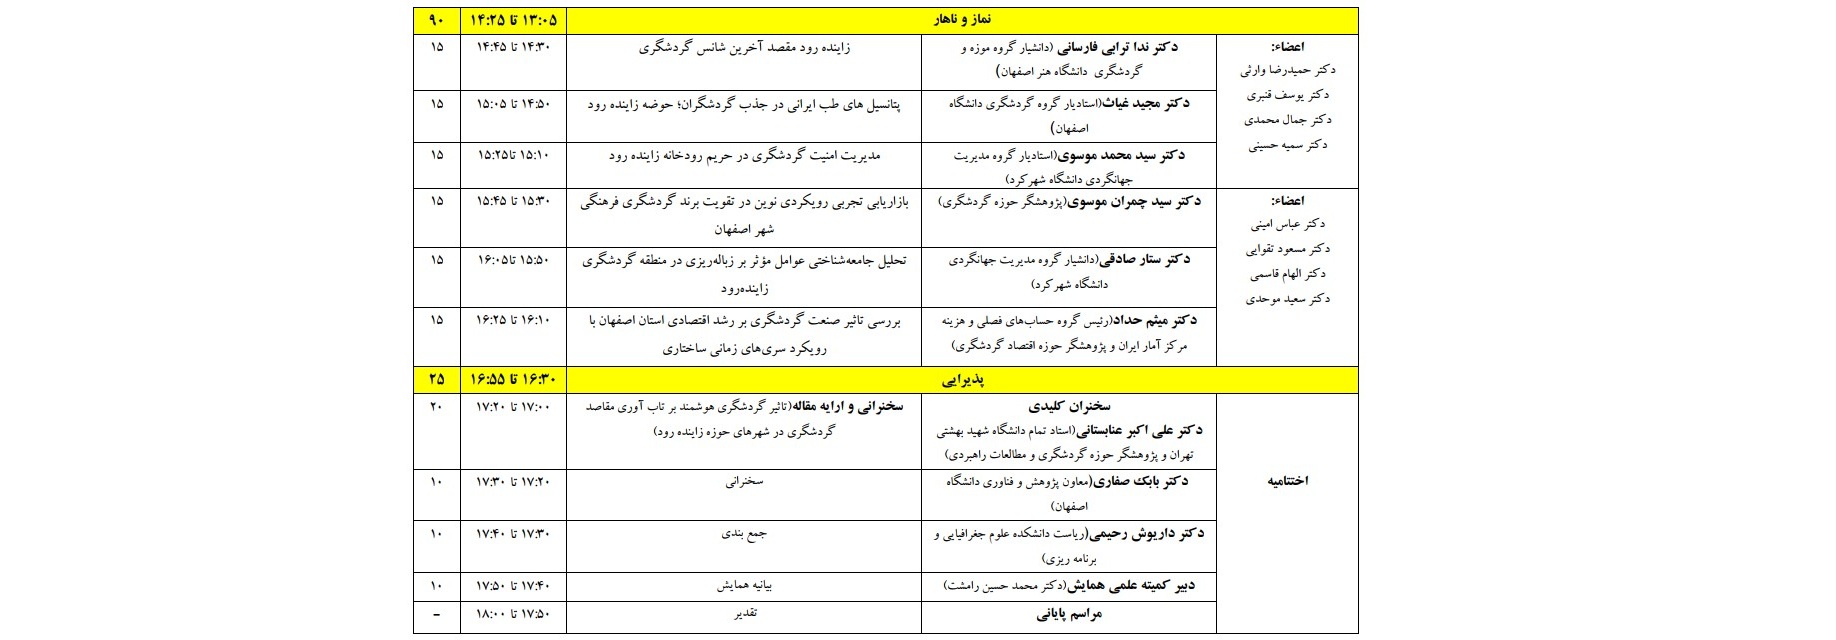 نماز و ناهار
۱۳:۰۵ تا ۱۴:۲۵
۹۰
اعضاء:
دکتر حمیدرضا وارثی
دکتر یوسف قنبری
دکتر جمال محمدی
دکتر سمیه حسینی
دکتر ندا ترابی فارسانی (دانشیار گروه موزه و
گردشگری دانشگاه هنر اصفهان)
زاینده رود مقصد آخرین شانس گردشگری
۱۴:۳۰ تا ۱۴:۴۵
۱۵
دکتر مجید غیاث(استادیار گروه گردشگری دانشگاه
اصفهان)
پتانسیل های طب ایرانی در جذب گردشگران؛ حوضه زاینده رود
۱۴:۵۰ تا ۱۵:۰۵
۱۵
دکتر سید محمد موسوی(استادیار گروه مدیریت
جهانگردی دانشگاه شهرکرد)
مدیریت امنیت گردشگری در حریم رودخانه زاینده رود
۱۵:۱۰ تا۱۵:۲۵
۱۵
اعضاء:
دکتر عباس امینی
دکتر مسعود تقوایی
دکتر الهام قاسمی
دکتر سعید موحدی
دکتر سید چمران موسوی(پژوهشگر حوزه گردشگری)
بازاریابی تجربی رویکردی نوین در تقویت برند گردشگری فرهنگی
شهر اصفهان
۱۵:۳۰ تا ۱۵:۴۵
۱۵
دکتر ستار صادقی(دانشیار گروه مدیریت جهانگردی
دانشگاه شهرکرد)
تحلیل جامعه‌شناختی عوامل مؤثر بر زباله‌ریزی در منطقه گردشگری
زاینده‌رود
۱۵:۵۰ تا۱۶:۰۵
۱۵
دکتر میثم حداد(رئیس گروه حساب‌های فصلی و هزینه
مرکز آمار ایران و پژوهشگر حوزه اقتصاد گردشگری)
بررسی تاثیر صنعت گردشگری بر رشد اقتصادی استان اصفهان با
رویکرد سری‌های زمانی ساختاری
۱۶:۱۰ تا ۱۶:۲۵
۱۵
پذیرایی
۱۶:۳۰ تا ۱۶:۵۵
۲۵
اختتامیه
سخنران کلیدی
دکتر علی اکبر عنابستانی(استاد تمام دانشگاه شهید بهشتی
تهران و پژوهشگر حوزه گردشگری و مطالعات راهبردی)
سخنرانی و ارایه مقاله(تاثیر گردشگری هوشمند بر تاب آوری مقاصد
گردشگری در شهرهای حوزه زاینده رود)
۱۷:۰۰ تا ۱۷:۲۰
۲۰
دکتر بابک صفاری(معاون پژوهش و فناوری دانشگاه
اصفهان)
سخنرانی
۱۷:۲۰ تا ۱۷:۳۰
۱۰
دکتر داریوش رحیمی(ریاست دانشکده علوم جغرافیایی و
برنامه ریزی)
جمع بندی
۱۷:۳۰ تا ۱۷:۴۰
۱۰
دبیر کمیته علمی همایش(دکتر محمد حسین رامشت)
بیانیه همایش
۱۷:۴۰ تا ۱۷:۵۰
۱۰
مراسم پایانی
تقدیر
۱۷:۵۰ تا ۱۸:۰۰
–